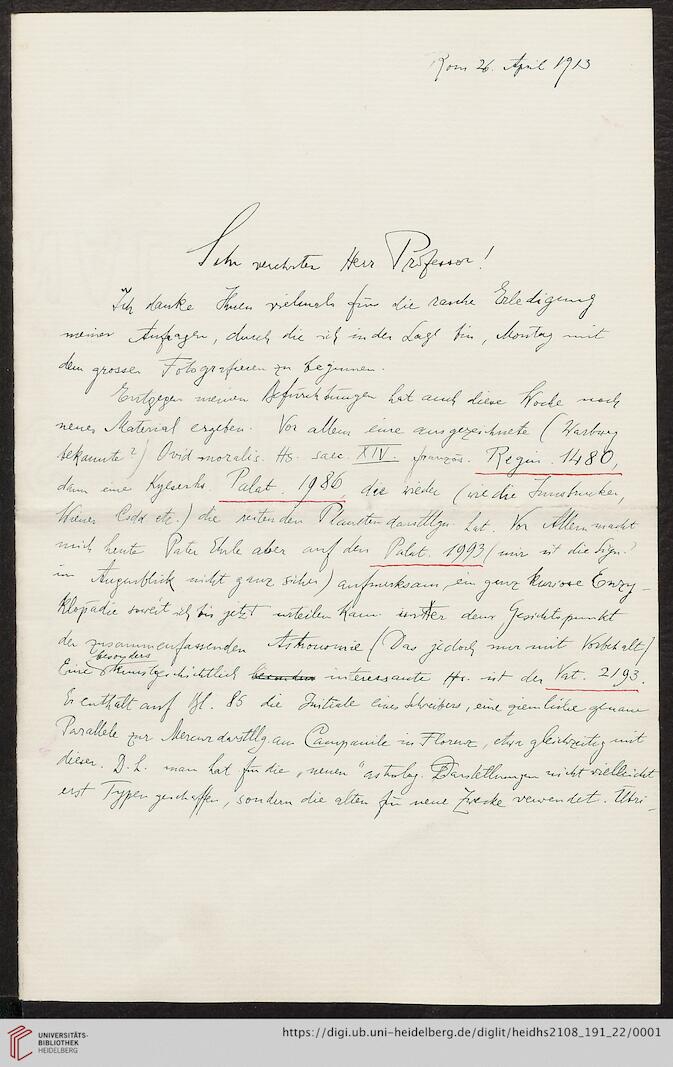 Rom 26. April 1913
Sehr verehrter Herr Professor!
Ich danke Ihnen vielmals für die rasche Erledigung
meiner Anfragen, durch die ich in der Lage bin, Montag mit
dem grossen Fotografieren zu beginnen.
Entgegen meinen Befürchtungen hat auch diese Woche noch
neues Material ergeben. Vor allem eine ausgezeichnete (Warburg
bekannte?) Ovid moralis. Hs. saec. XIV. französ. Regin. 1480,
dann eine Kyeserhs. Palat. 1986, die wieder (wie die Innsbrucker,
Wiener Codd etc.) die reitenden Planetendarstllgn. hat. Vor Allem macht
mich heute Pater Ehrle aber auf den Palat. 1993 (mir ist die Sign.
im Augenblick nicht ganz sicher) aufmerksam, ein ganz kuriose Enzy-
klopädie soweit ich bis jetzt urteilen kann unter dem Gesichtspunkt
der zusammenfassenden Astronomie (Das jedoch nur mit Vorbehalt)
Eine besonders kunstgeschichtlich besonders interessante Hs. ist der Vat. 2193.
Er enthält auf Bl. 85 die Initiale eines Schreibers, eine ziemliche genaue
Parallele zur Mercurdarstllg. am Campanile in Florenz, etwa gleichzeitig mit
dieser. D. h. man hat für die „neuen" astrolog. Darstellungen nicht vielleicht
erst Typen geschaffen, sondern die alten für neue Zwecke verwendet. Übri-
UNIVERSITÄTS-
BIBLIOTHEK
HEIDELBERG
https://digi.ub.uni-heidelberg.de/diglit/heidhs2108_191_22/0001